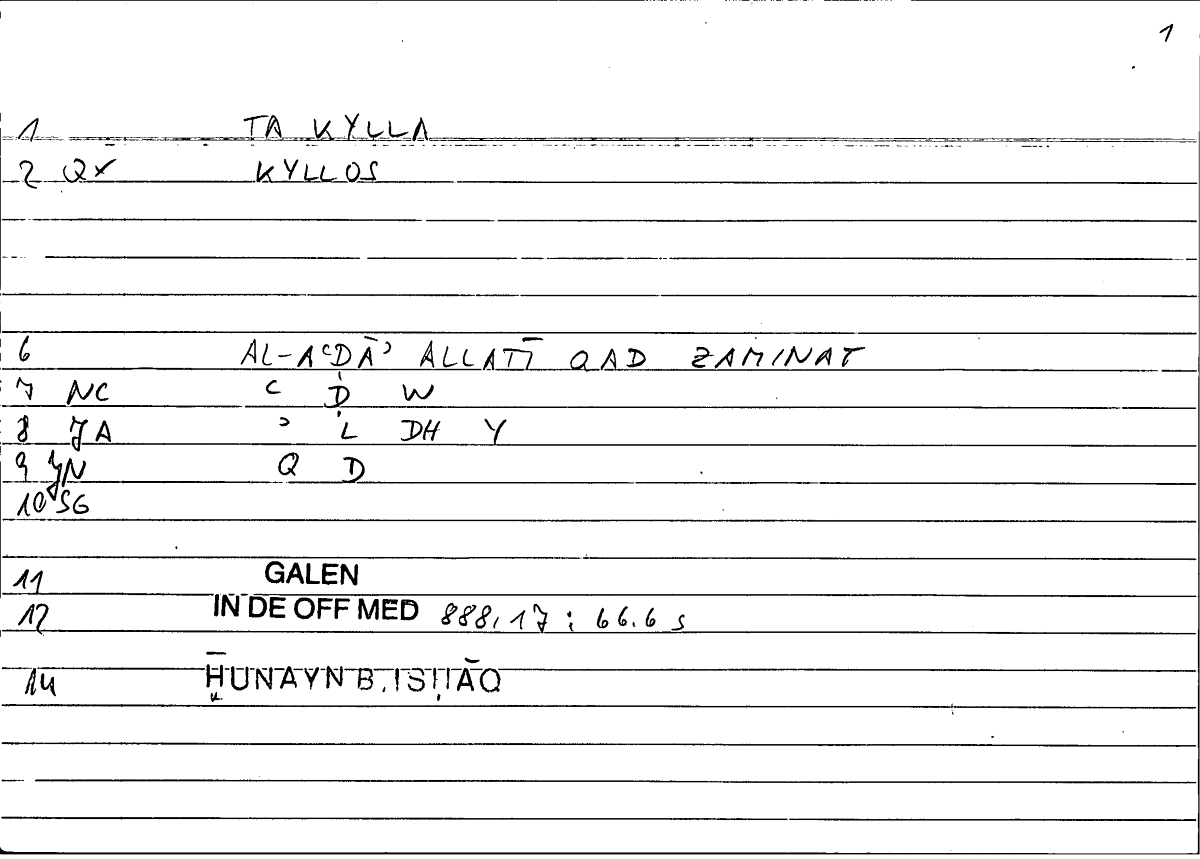 1
1 TA KYLLA
2 QX KYLLOS
6 AL-AʿḌĀʾ ALLATĪ QAD ZAMINAT
7 NC ʿ Ḍ W
8 JA ʾ L DH Y
9 JN Q D
10 SG
11 GALEN
12 IN DE OFF MED 888,17 : 66.6 s
14 ḤUNAYN B. ISḤĀQ